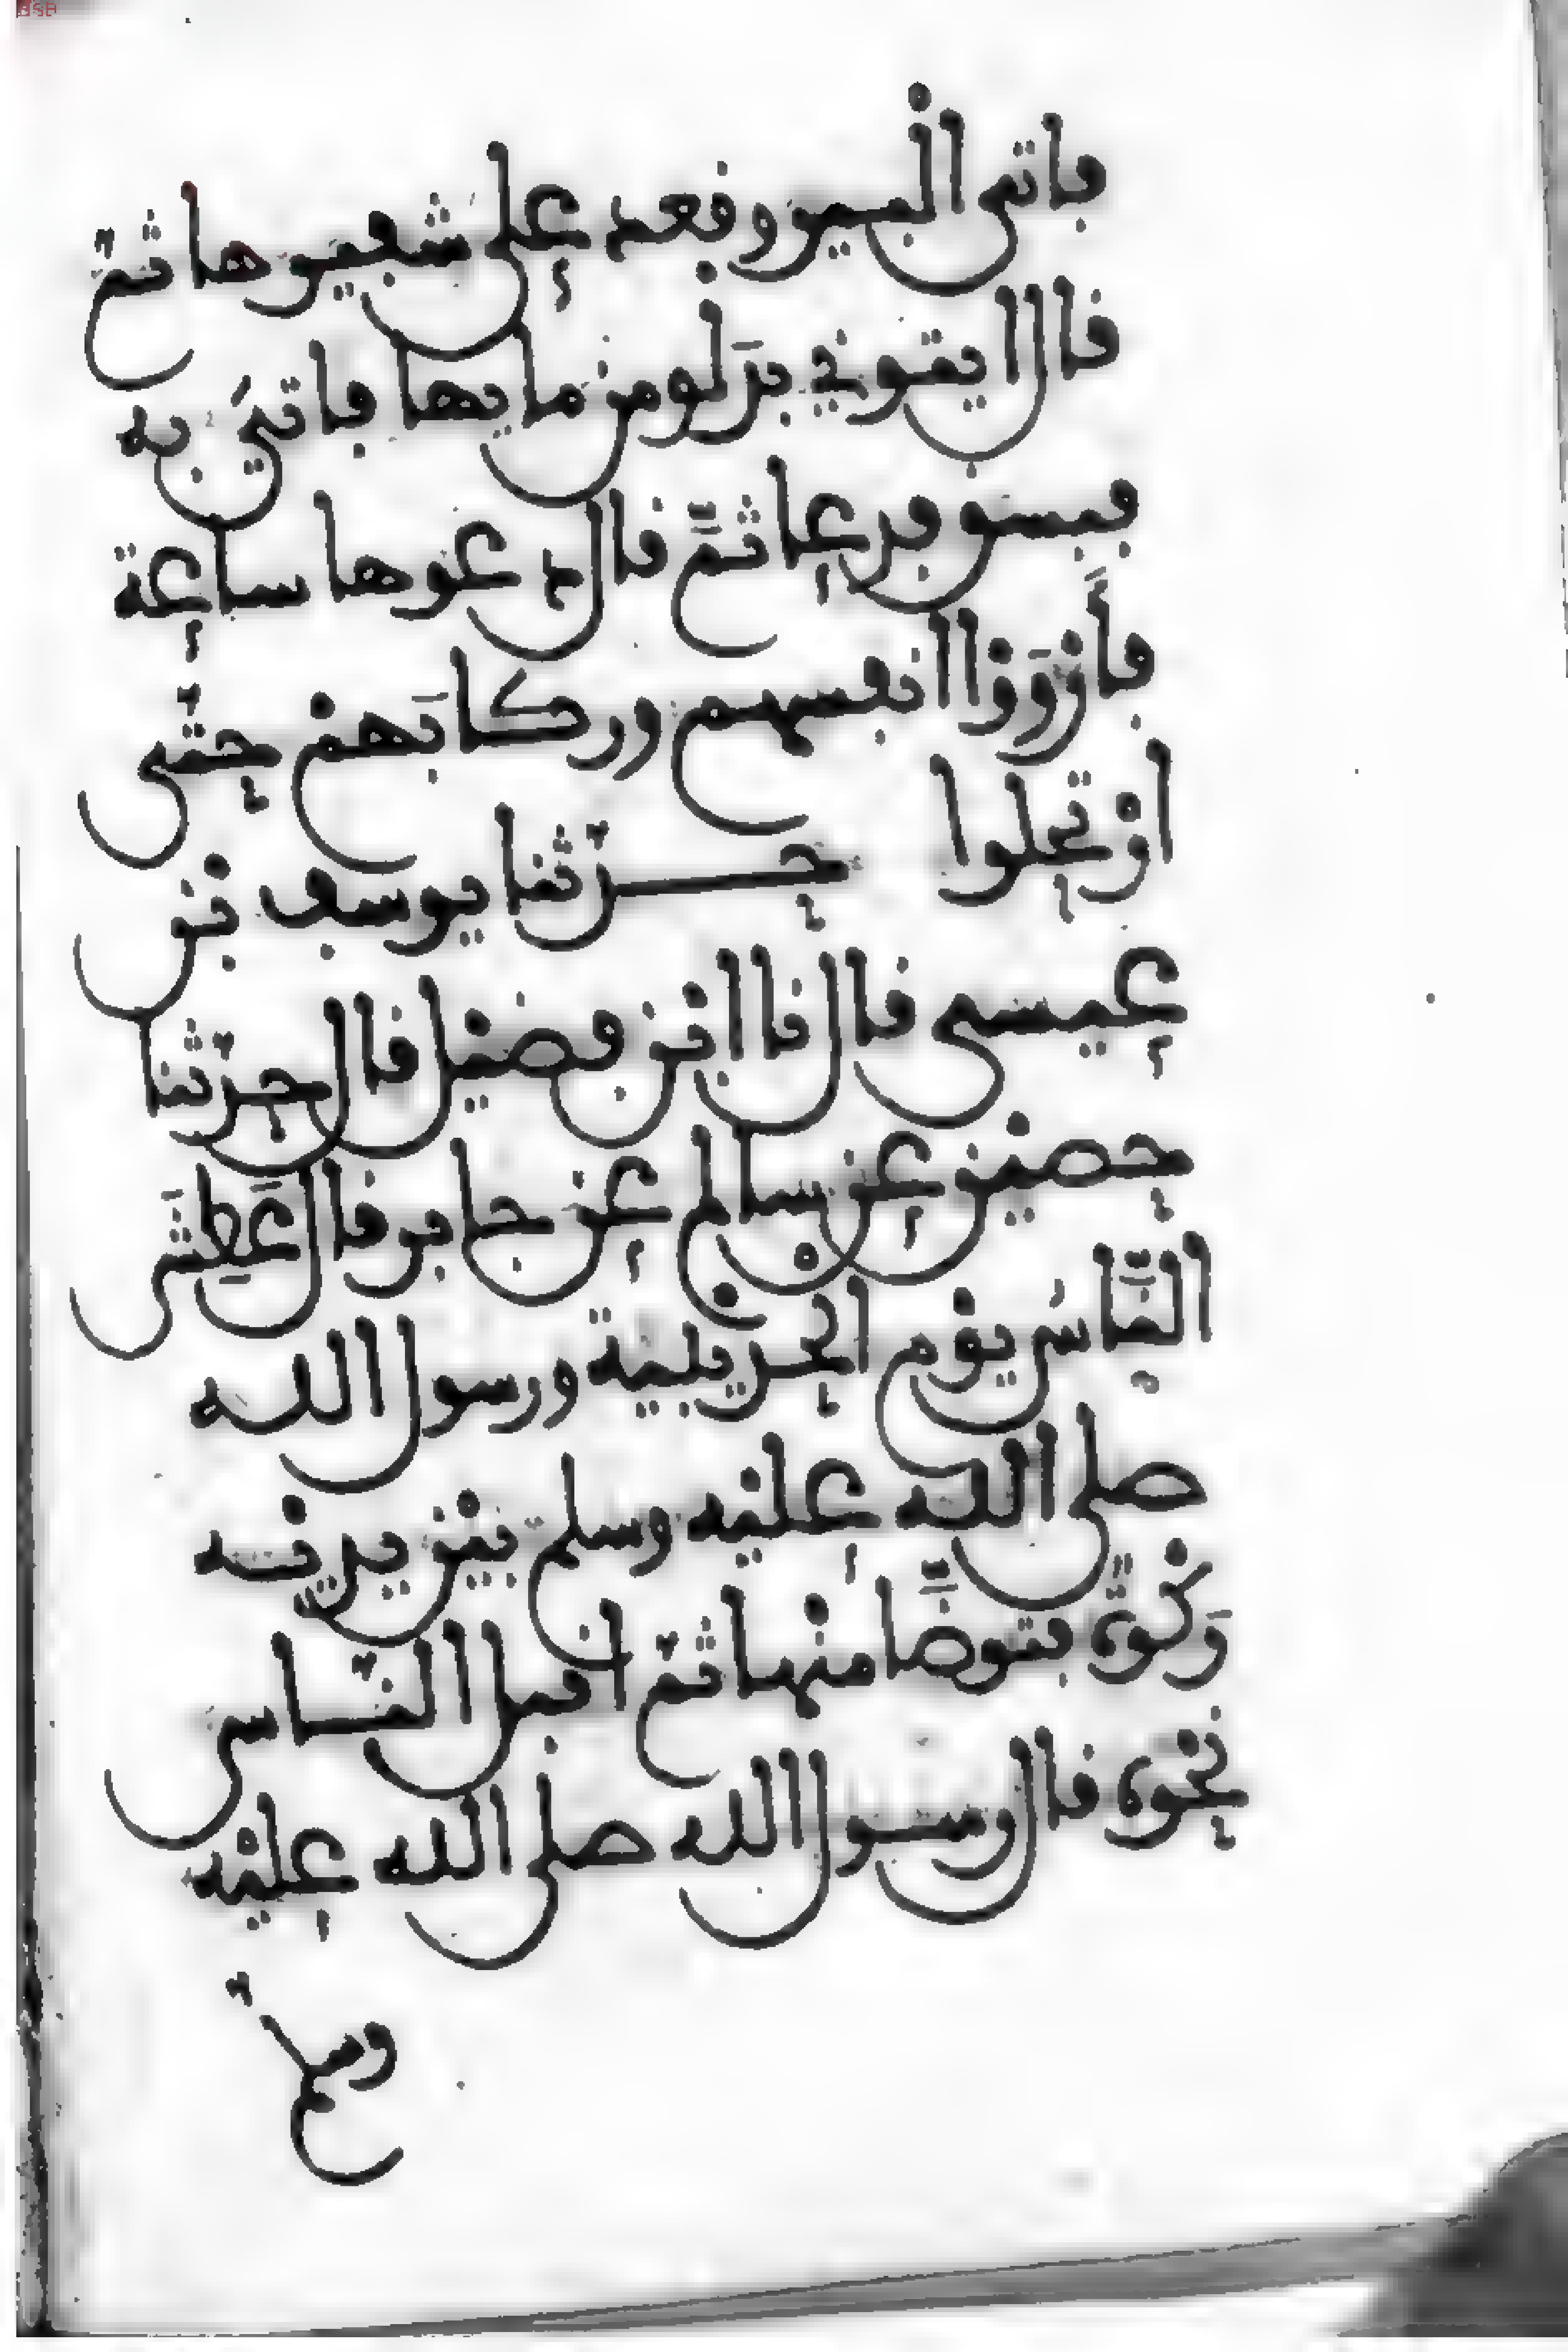 فاتى البير وقعد على شفيرها ثم
قال ايتوني بدَلو من مايها فاتيَ به
فبسق فدعا ثمَّ قال دعوها ساعة
فأرْوَوْا انفسهم وركابَهمْ حتّى
ارْتحلوا حدّثنا يوسف بْن
عيسى قال نا ابْن فضيْل قال حدّثنا
حصيْن عن سالم عن جابر قال عَطِشَ
النَّاسُ يوْم الحديبية ورسول الله
صلى الله عليْه وسلم بيْن يديْه
رَكْوةٌ فتوضَّا منْها ثمّ اقبل النّاس
نحْوه قال رسول الله صلى الله عليْه
وسلم